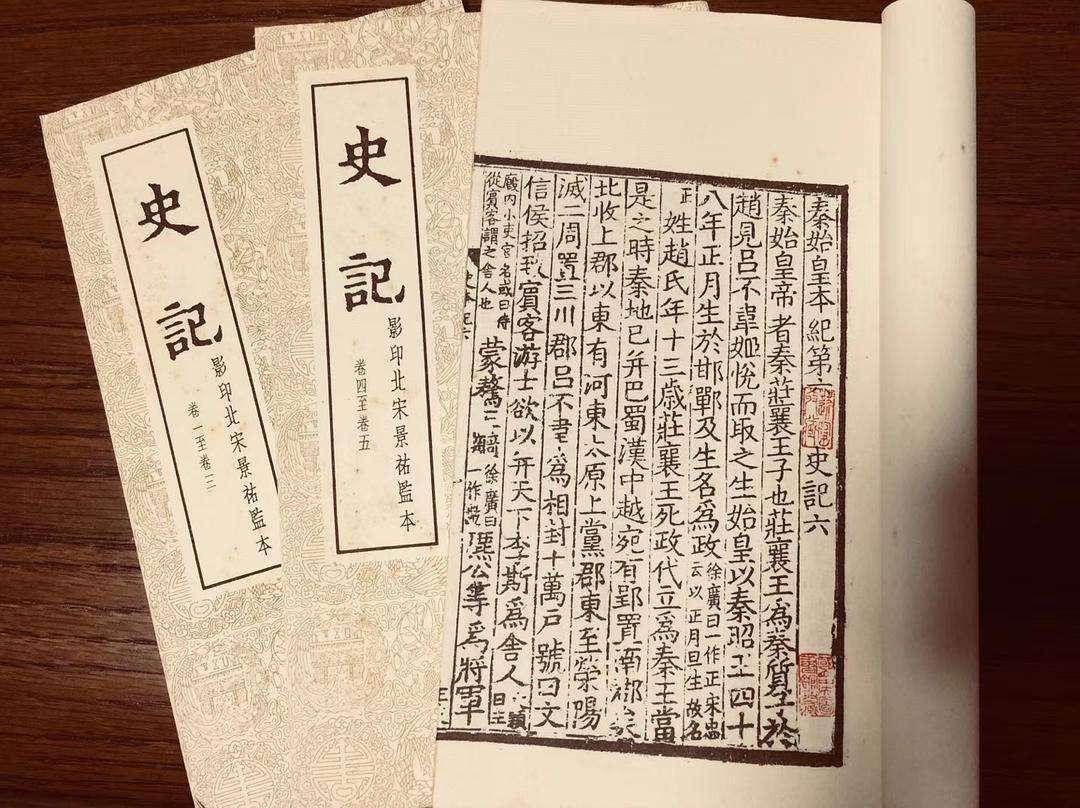 史記
影印北宋景祐監本
卷一至卷三
史記
影印北宋景祐監本
卷四至卷五
秦始皇本紀第六 史記六
秦始皇帝者秦莊襄王子也莊襄王為秦質子於
趙見呂不韋姬悅而取之生始皇以秦昭王四十
八年正月生於邯鄲及生名為政徐廣曰一作正宋忠云以正月旦生故名
正姓趙氏年十三歲莊襄王死政代立為秦王當
是之時秦地已并巴蜀漢中越宛有郢置南郡矣
北收上郡以東有河東太原上黨郡東至滎陽
滅二周置三川郡呂不韋為相封十萬戶號曰文
信侯招致賓客游士欲以并天下李斯為舍人
廄内小吏官名或曰侍
從賓客謂之舍人也
蒙驁王齮徐廣曰一作齕麃公等為將軍